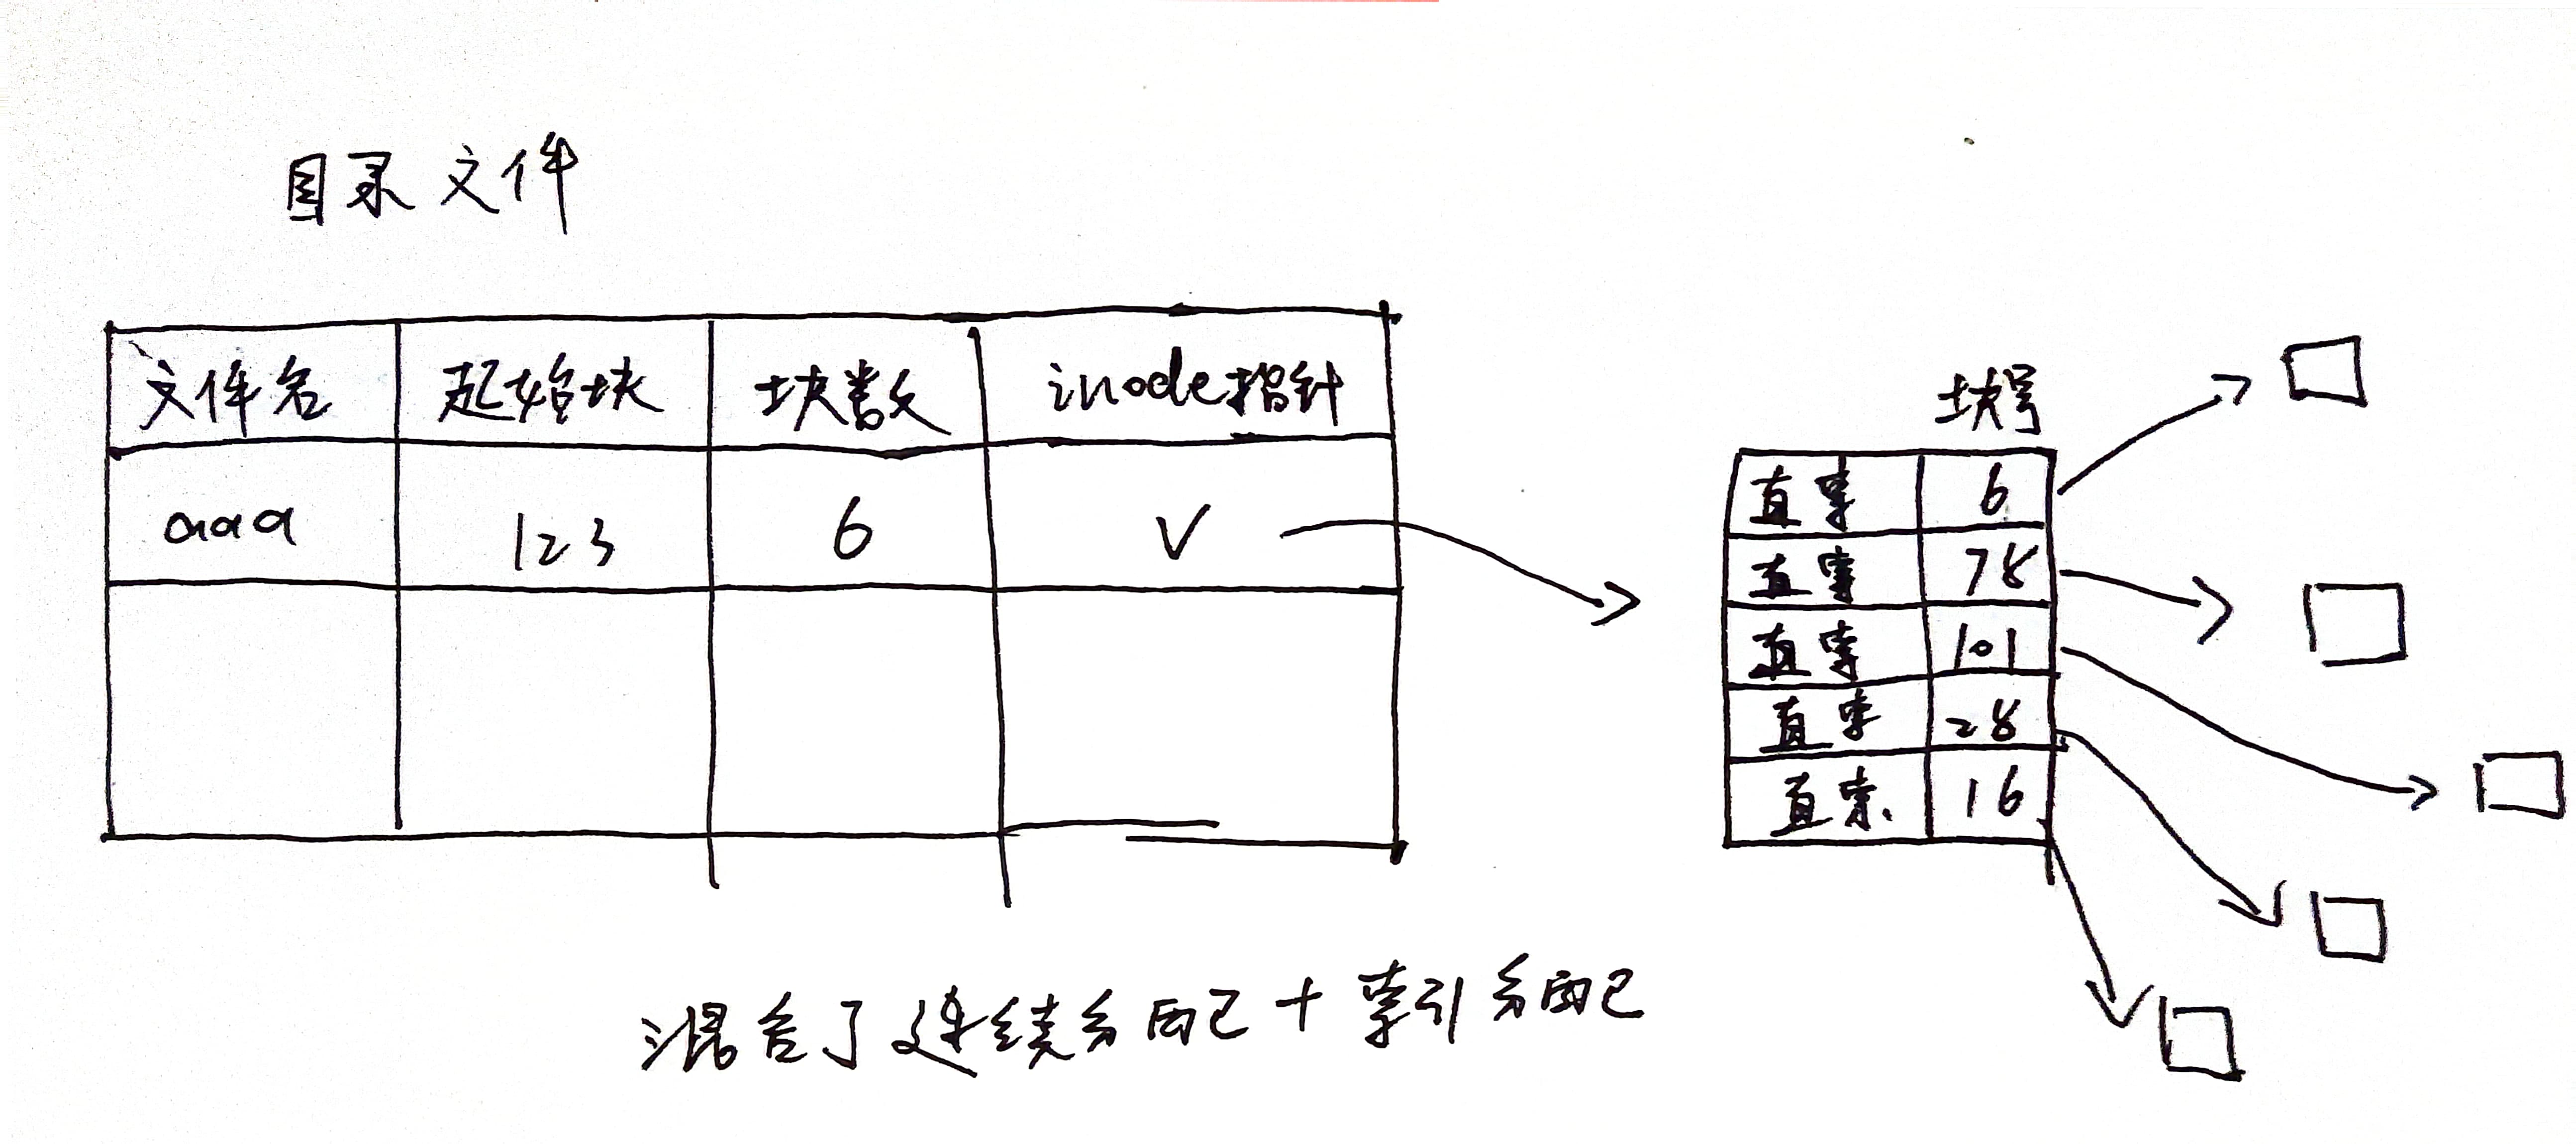 目录文件
文件名 起始块 块数 inode指针
aaa 123 6 √
块号
直索 6
直索 78
直索 101
直索 28
直索 16
混合了连续分配+索引分配